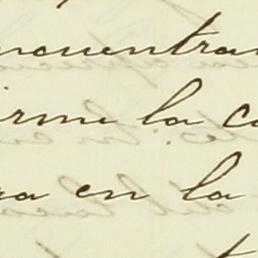 ncuentra
irme la co
ra en la